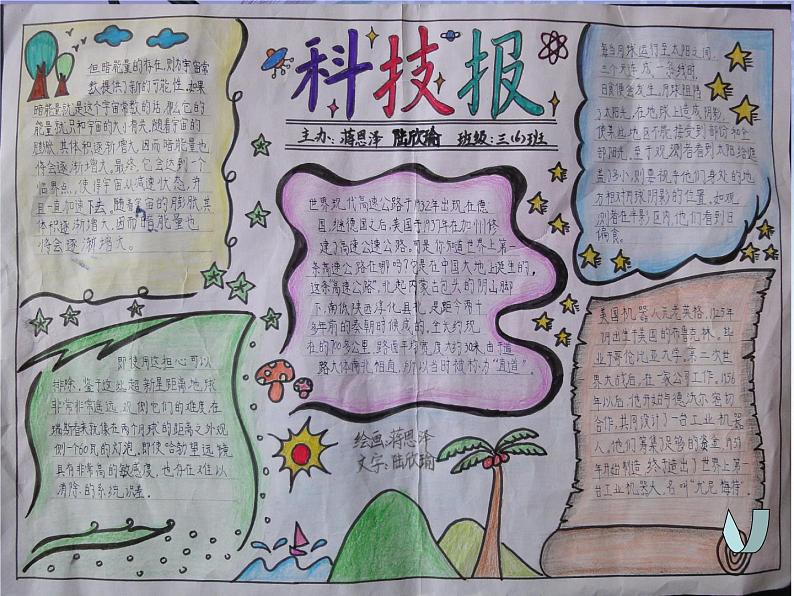 科技报
主办:蒋恩泽 陆欣瑜 班级:三(6)班
但暗能量的存在,则为宇宙常
数提供了新的可能性。如果
暗能量就是这个宇宙常数的话,那么它的
能量就只和宇宙的大小有关。随着宇宙的
膨胀,其体积逐渐增大,因而暗能量也
将会逐渐增大。最终,它会达到一个
临界点,使得宇宙从减速状态,并
且一直加速下去。随着宇宙的膨胀,其体
体积逐渐增大,因而暗能量也
将会逐渐增大。
世界现代高速公路于1932年出现在德
国,继德国之后,美国于1937年在加州修
建了高速公路。可是,你知道世界上第一
条高速公路在哪吗?它是在中国大地上诞生的,
这条"高速公路",北起内蒙古包头的阴山脚
下,南低陕西淳化县北,是距今两千
多年前的秦朝时候成的,全大约现
在的700多公里,路面平均宽度大约30米,由于道
路大体南北相直,所以当时被称为"直道"
每当月球运行至太阳之间
三个天连成一条线时,
日食便会发生,月球阻挡
了太阳光,在地球上造成阴影,
使某些地区不能接受到部份和全
部阳光。至于观测者看到太阳给遮
盖了多小,则要视乎他们身处的地
方相对月球阴影的位置。如观
测者在半影区内,他们看到日
偏食。
即使用这担心可以
排除,鉴于这些超新星距离地球
非常非常遥远,观侧它们的难度在
瑞斯看来就像在两个月球的距离之外观
侧一个60瓦的灯泡。即使哈勃望远镜
具有非常高的敏感度,也存在难以
消除的系统误差。
美国机器人元老英格,1925年
阴出生于美国的布鲁克林。毕
业于哥伦比亚大学。第二次世
界大战后,在一家公司工作。1956
年以后,他开始与德沃尔密切
合作,共同设计了一台工业机器
人。他们筹集足够的资金,自1959
年开始制造,终于造出了世界上第一
台工业机器人,名叫"尤尼梅特"
绘画:蒋恩泽
文字:陆欣瑜